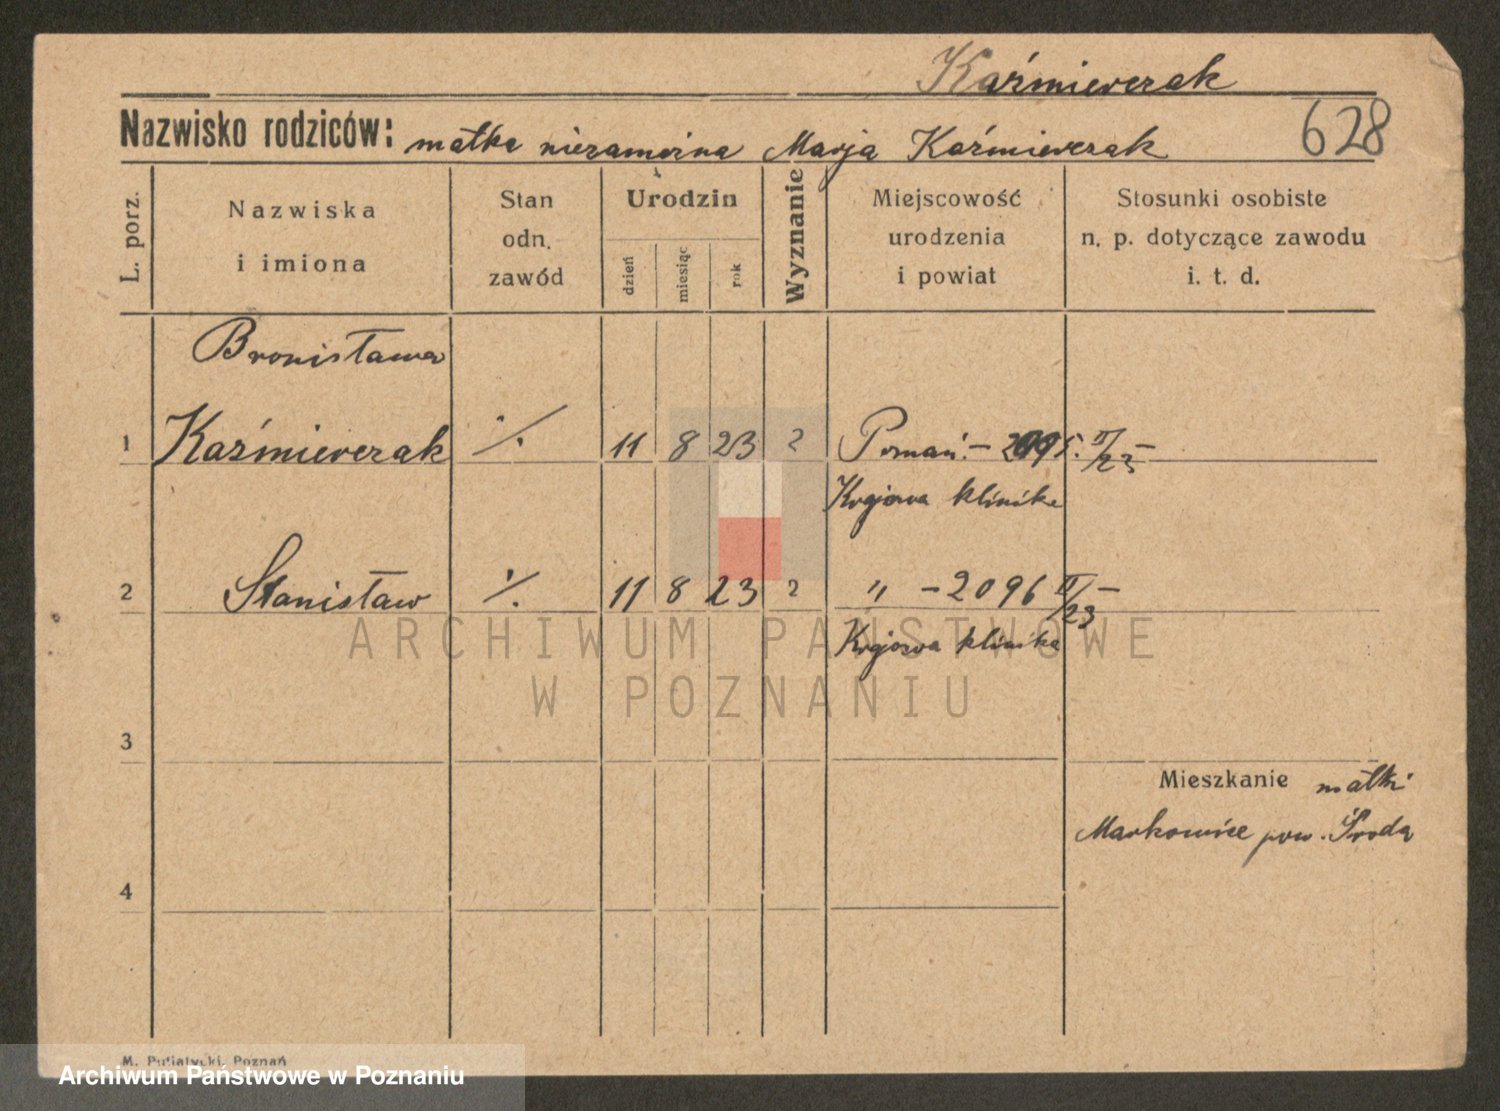 Kaźmierczak
Nazwisko rodziców: matka niezamężna Marja Kaźmierczak
628
L. porz.
Nazwiska
i imiona
Stan
odn.
zawód
Urodzin
dzień
miesiąc
rok
Wyznanie
Miejscowość
urodzenia
i powiat
Stosunki osobiste
n. p. dotyczące zawodu
i. t. d.
Bronisława
1 Kaźmierczak ·/. 11 8 23 2 Poznań. – 2095. II/23 –
Krajowa klinika
2 Stanisław ·/. 11 8 23 2 „ – 2096 II/23 –
Krajowa klinika
ARCHIWUM PAŃSTWOWE
W POZNANIU
3
Mieszkanie matki
Markowice pow. Środa
4
M. Putiatycki, Poznań
Archiwum Państwowe w Poznaniu